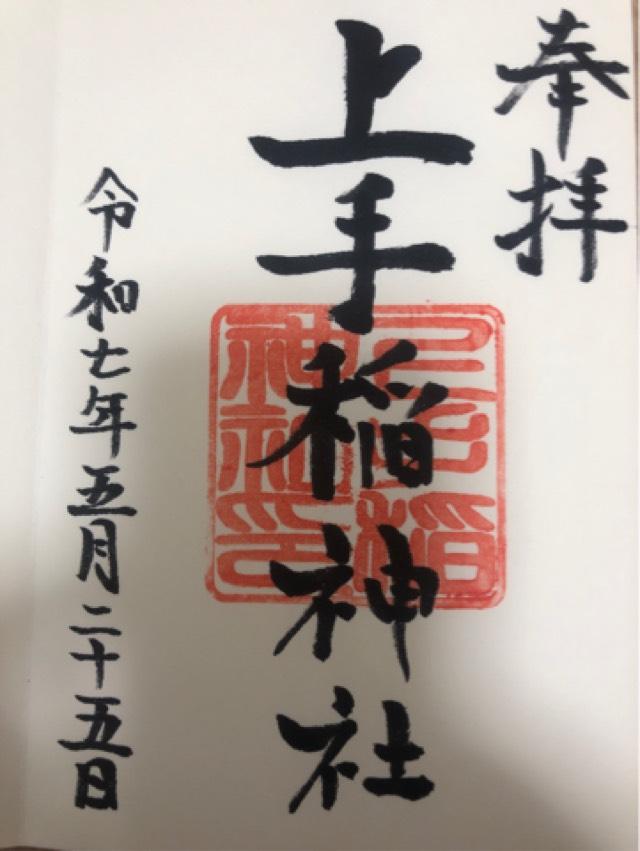 奉拝
上手稲神社
上手稲
神社印
令和七年五月二十五日